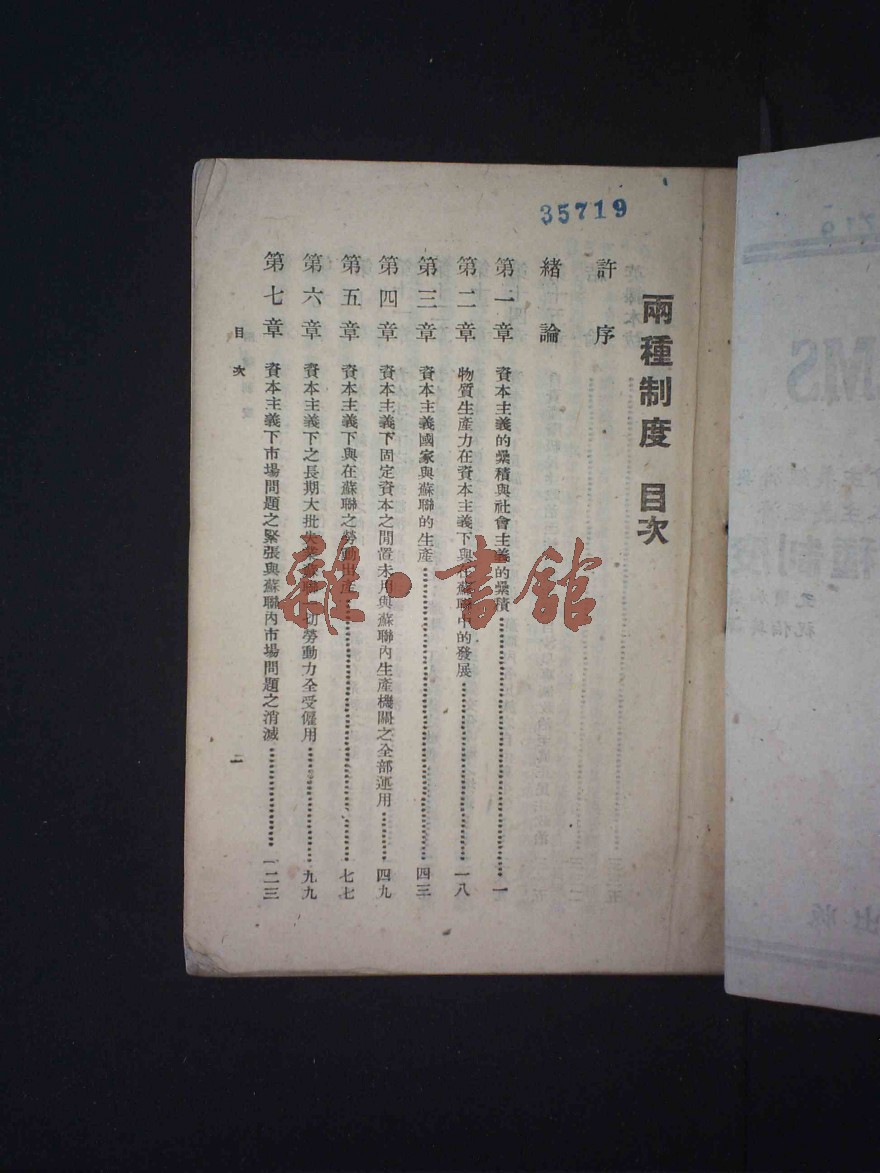 35719
兩種制度 目次
許序
緒論
第一章 資本主義的纍積與社會主義的纍積⋯⋯一
第二章 物質生產力在資本主義下與在蘇聯中的發展⋯⋯一八
第三章 資本主義國家與蘇聯的生產⋯⋯四三
第四章 資本主義下固定資本之閒置未用與蘇聯內生產機關之全部運用⋯⋯四九
第五章 資本主義下與在蘇聯之勞動出產⋯⋯七七
第六章 資本主義下之長期大批失業蘇聯一切勞動力全受僱用⋯⋯九九
第七章 資本主義下市場問題之緊張與蘇聯內市場問題之消滅⋯⋯一二三
目次 二
雜·書館